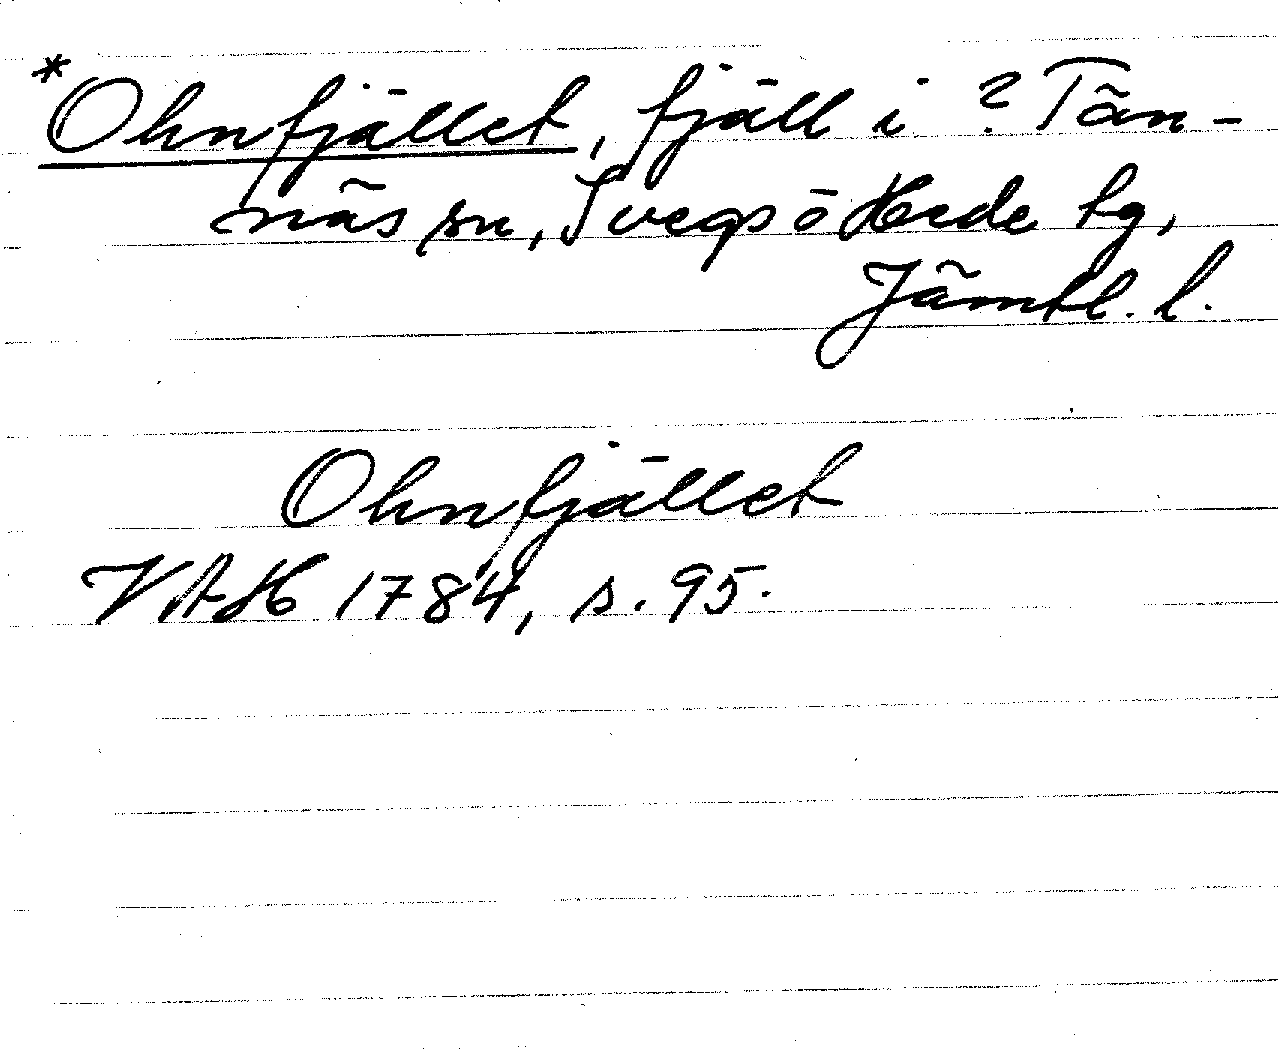 *Ohnfjället, fjäll i ? Tän-
näs sn, Svegs o Hede tg,
Jämtl. l.
Ohnfjället
VAH 1784, s. 95.